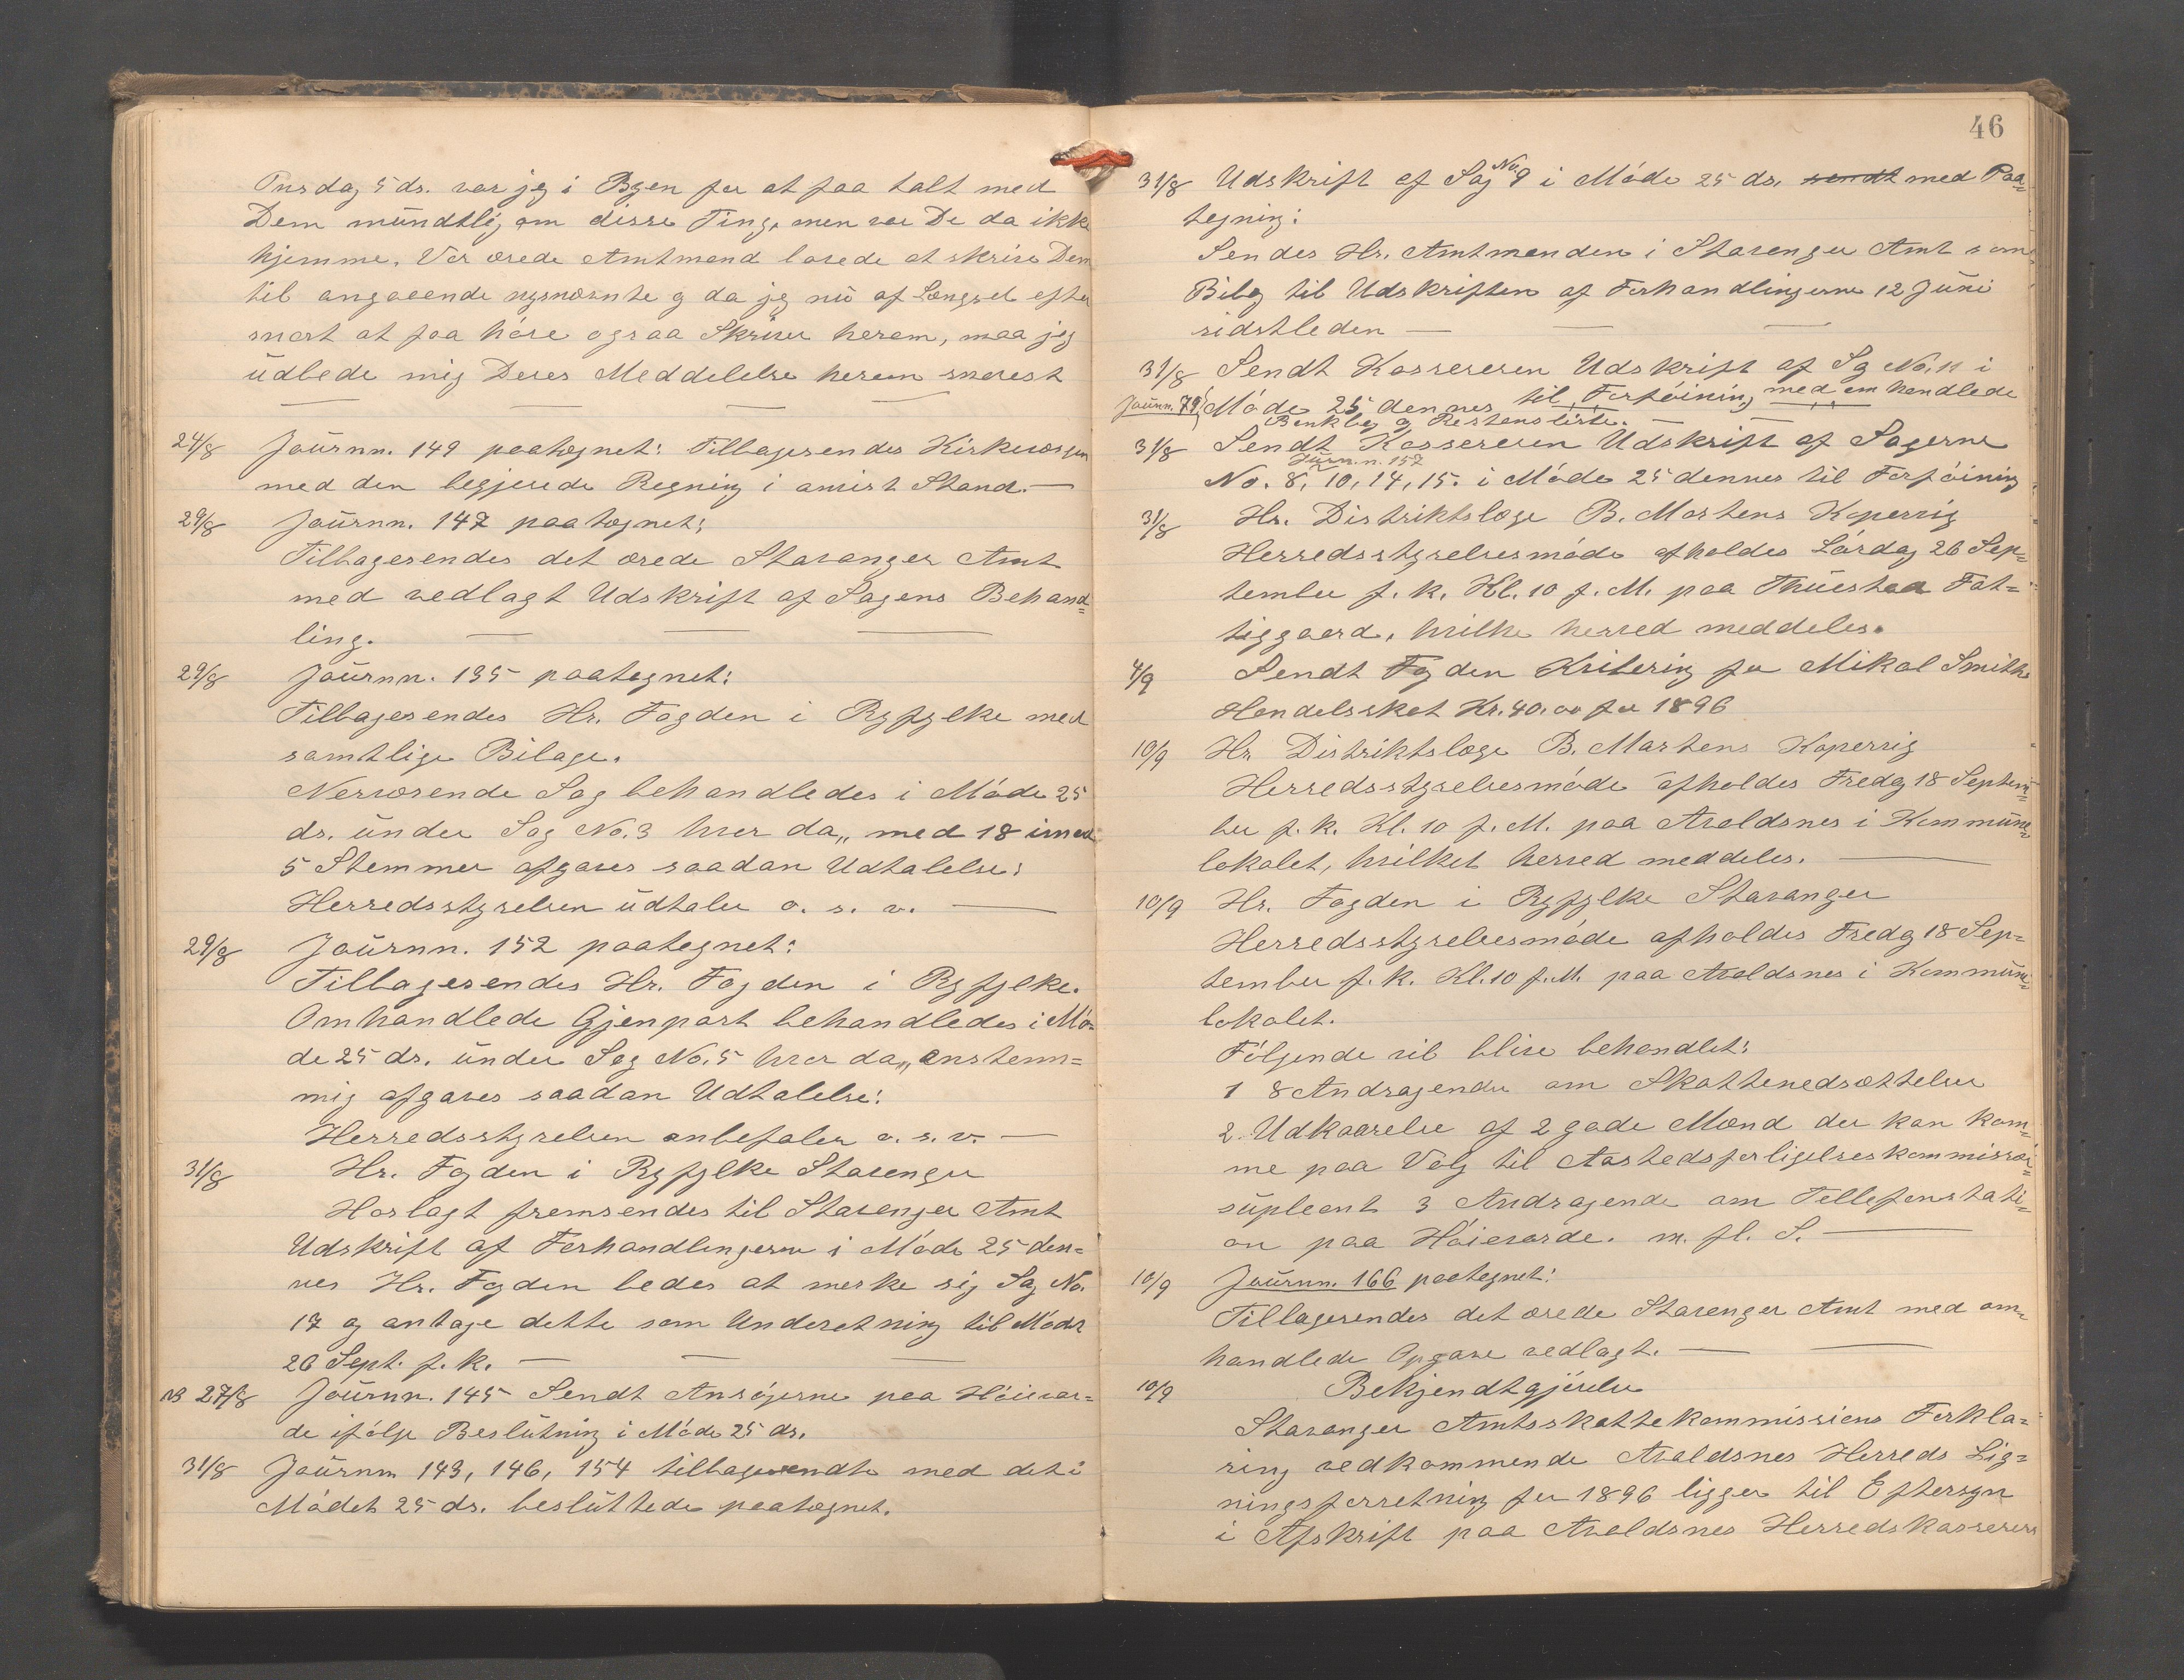 Onsdag 5 ds. var jeg i Byen for at faa talt med
Dem mündtlig om disse Ting, men var De da ikke
hjemme. Vor ærede Amtmand lovede at skrive Dem
til angaaende nysnævnte og da jeg nü af Længsel efter
snart at faa høre ogsaa Skriver herom, maa jeg
üdbede mig Deres Meddelelse herom snarest
24/8 Joürnn. 149 paategnet: Tilbagesendes Kirkeværgen
med den begjerede Regning i anvist Stand.—
29/8 Joürnn. 147 paategnet:
Tilbagesendes det ærede Stavanger Amt
med vedlagt Udskrift af Sagens Behand=
ling.
29/8 Joürnn. 135 paategnet:
Tilbagesendes Hr. Fogden i Ryfylke med
samtlige Bilage.
Nerværende Sag behandledes i Møde 25
ds. ünder Sag No. 3 hvor da „ med 18 imod
5 Stemmer afgaves saadan Udtalelse:
Herredsstyrelsen üdtaler o. s. v. —
29/8 Joürnn. 152 paategnet:
Tilbagesendes Hr. Fogden i Ryfylke.
Omhandlede Gjenpart behandledes i Mø=
de 25 ds. ünder Sag No. 5 hvor da „ enstem=
mig afgaves saadan Udtalelse:
Herredsstyrelsen anbefaler o. s. v. —
31/8 Hr. Fogden i Ryfylke Stavanger
Hoslagt fremsendes til Stavanger Amt
Udskrift af Forhandlingerne i Møde 25 den=
nes Hr. Fogden bedes at merke sig Sag No.
17 og antage dette som Underetning til Mødet
26 Sept. f. k. —
NB 27/8 Joürnn. 145 Sendt Ansøgerne paa Høievar=
de ifølge Beslütning i Møde 25 ds.
31/8 Joürnn 143, 146, 154 tilbagesendt med det i
Mødet 25 ds. beslüttede paategnet.
46
31/8 Udskrift af Sag No. 9 i Møde 25 ds. sendt med Paa=
tegning:
Sendes Hr. Amtmanden i Stavanger Amt som
Bilag til Udskriften af Forhandlingerne 12 Jüni
sidstleden —
31/8 Sendt Kassereren Udskrift af Sag No. 11 i
Joürnn. 79 Møde 25 dennes til Forføining med omhandlede
Bankbog og Restensliste.
31/8 Sendt Kassereren Udskrift af Sagerne
Jürnn. 157
No. 8, 10, 14, 15. i Møde 25 dennes til Forføining
31/8 Hr. Distriktslæge B. Martens Kopervig
Herredsstyrelsesmøde afholdes Lørdag 26 Sep=
tember f. k. Kl. 10 f. M. paa Thüestad Fat=
tiggaard, hvilke herved meddeles.
4/9 Sendt Fogden Kvitering for Mikal Smiths
Handelsskat Kr. 40.00 for 1896
10/9 Hr. Distriktslæge B. Martens Kopervig
Herredsstyrelsesmøde afholdes Fredag 18 Septem=
ber f. k. Kl. 10 f. M. paa Avaldsnes i Kommüne=
lokalet, hvilket herved meddeles. —
10/9 Hr. Fogden i Ryfylke Stavanger
Herredsstyrelsesmøde afholdes Fredag 18 Sep=
tember f. k. Kl. 10 f. M. paa Avaldsnes i Kommüne=
lokalet.
Følgende vil blive behandlet:
1 8 Andragender om Skattenedsættelser
2. Udkaarelse af 2 gode Mænd der kan kom=
me paa Valg til Aastedsforligelseskommissær=
süpleant 3 Andragende om Tellefonstati=
on paa Høievarde. m. fl. S. —
10/9 Joürnn. 166 paategnet:
Tilbagesendes det ærede Stavanger Amt med om=
handlede Opgave vedlagt. —
10/9 Bekjendtgjørelse
Stavanger Amtsskattekommissions Forkla=
ring vedkommende Avaldsnes Herreds Lig=
ningsforretning for 1896 ligger til Eftersyn
i Afskrift paa Avaldsnes Herredskasserers